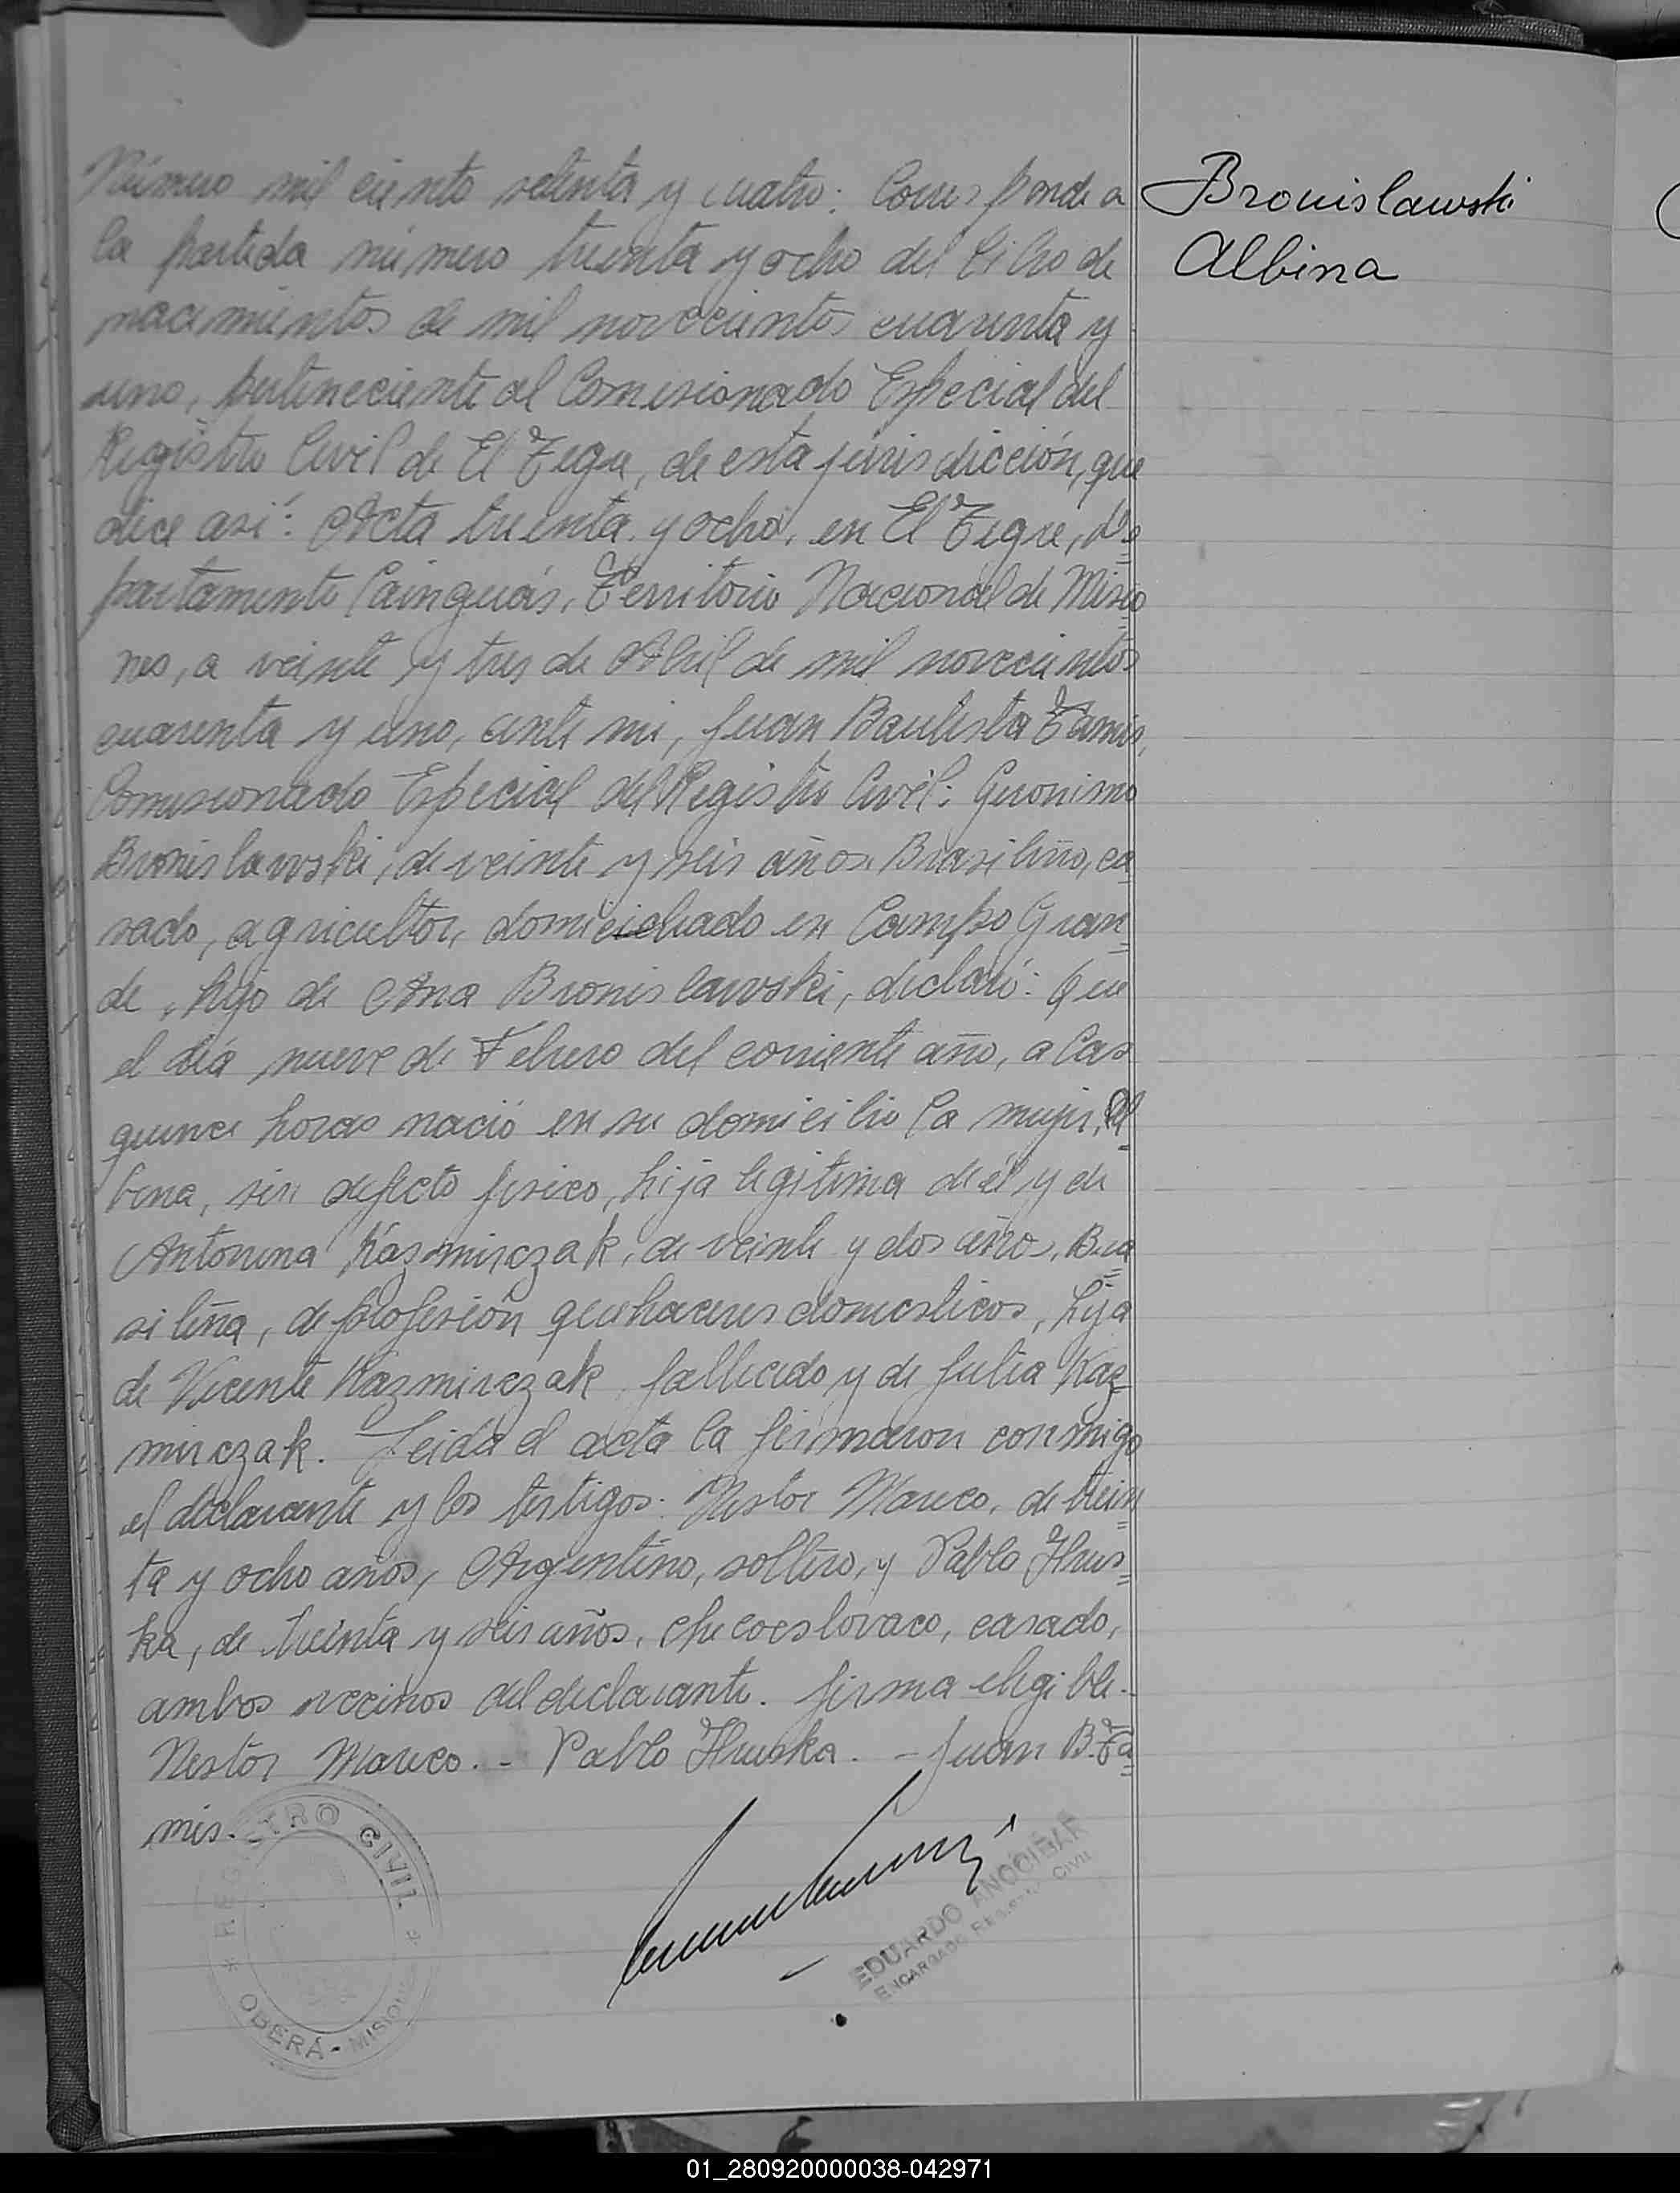 Número mil ciento setenta y cuatro: Corresponde a
la partida número treinta y ocho del Libro de
nacimientos de mil novecientos cuarenta y
uno, perteneciente al Comisionado Especial del
Registro Civil de El Tegre, de esta jurisdicción, que
dice así: Acta treinta y ocho, en El Tegre, De=
partamento Cainguás, Territorio Nacional de Misio=
nes, a veinte y tres de Abril de mil novecientos
cuarenta y uno, ante mi, Juan Bautista Tamis,
Comisionado Especial del Registro Civil: Geronimo
Bronislawski, de veinte y seis años, Brasileño, ca=
sado, agricultor, domiciliado en Campo Gran=
de, hijo de Ana Bronislawski, declaró: Que
el día nueve de Febrero del corriente año, a las
quince horas nació en su domicilio la mujer, Al=
bina, sin defecto fisico, hija legitima de él y de
Antonina Kasmirczak, de veinte y dos años, Bra=
sileña, de profesión quehaceres domesticos, hija
de Vicente Kazmirczak, fallecido y de Julia Kaz=
mirczak. Leida el acta la firmaron conmigo
el declarante y los testigos: Nestor Mareco, de trein=
ta y ocho años, Argentino, soltero, y Pablo Hrus=
ka, de treinta y seis años, checoeslovaco, casado,
ambos vecinos del declarante. firma elegible.-
Nestor Mareco.- Pablo Hruska.- Juan B. Ta=
mis.
Bronislawski
Albina
REGISTRO CIVIL
OBERÁ - MISIONES
EDUARDO ANOCIBAR
ENCARGADO REGISTRO CIVIL
01_280920000038-042971